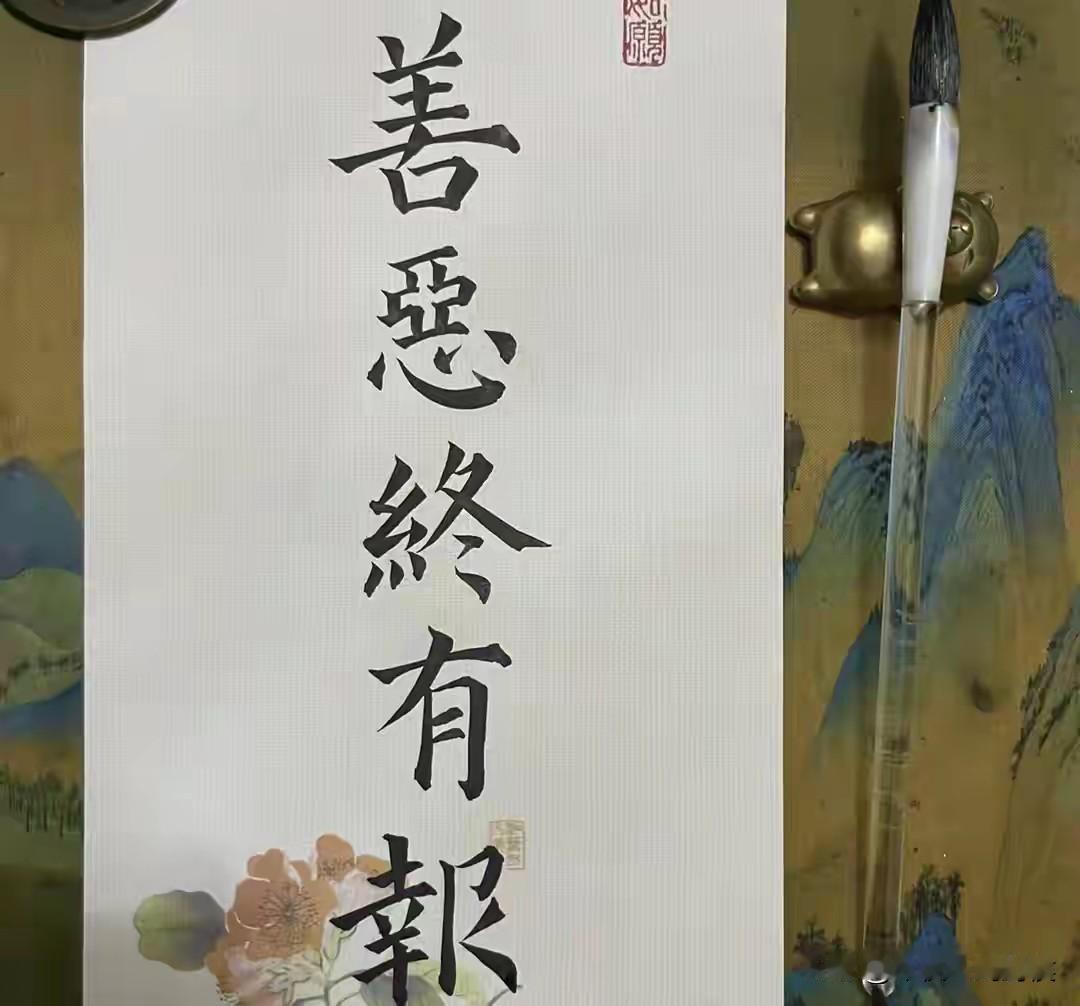 善惡終有報
願